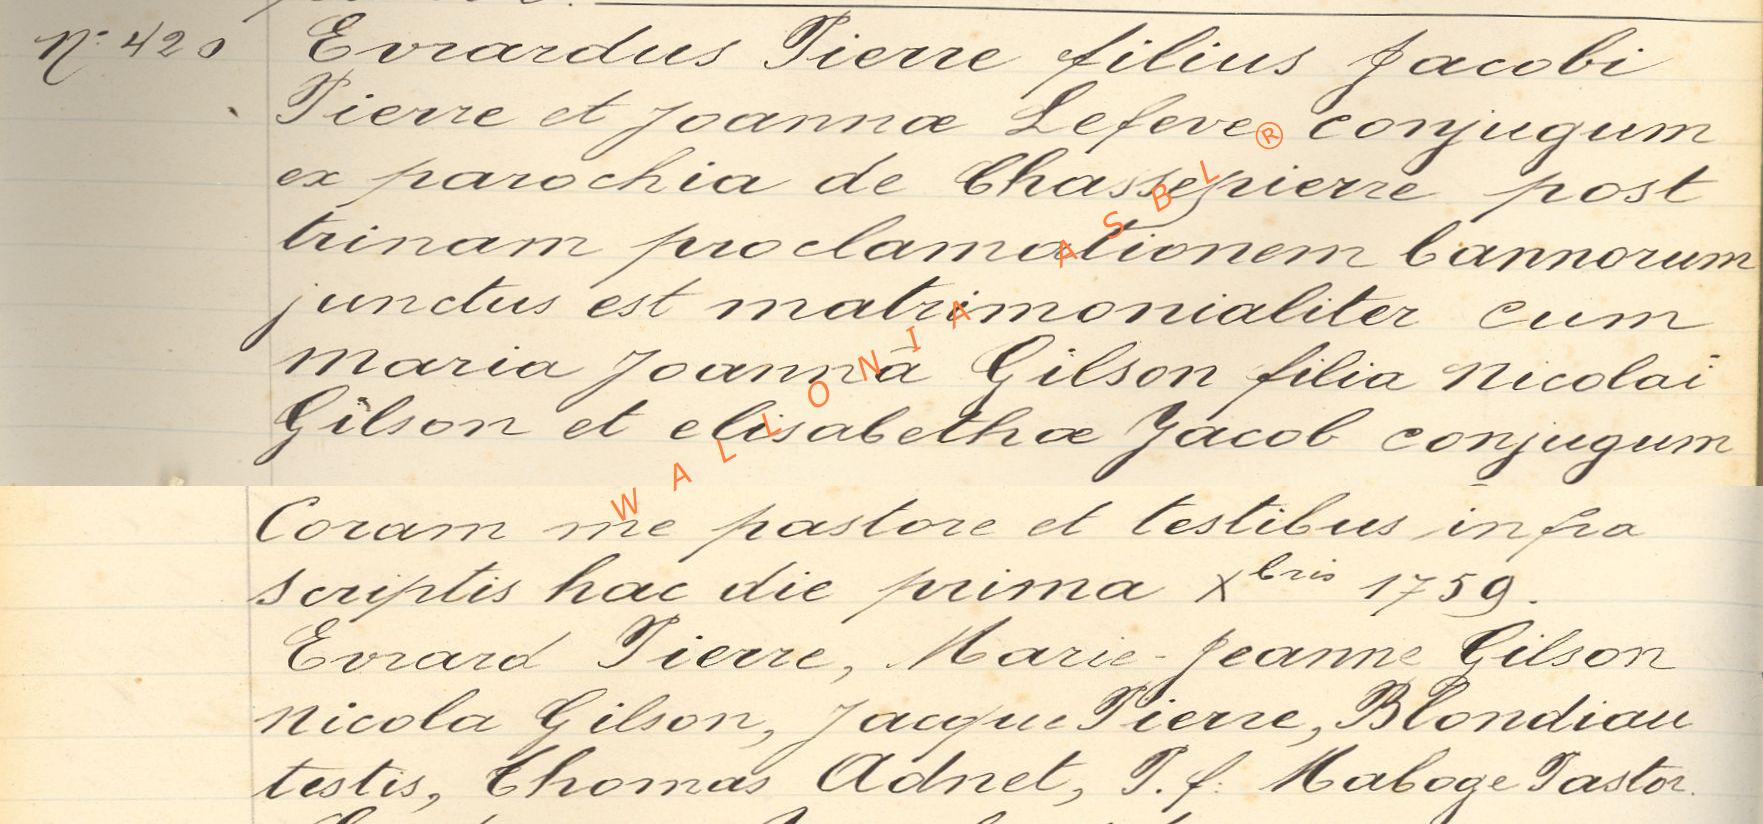 N° 420 Evrardus Pierre filius Jacobi
Pierre et Joannæ Lefeve conjugum
ex parochia de Chassepierre post
trinam proclamationem bannorum
junctus est matrimonialiter cum
maria Joannâ Gilson filia Nicolai
Gilson et elisabethæ Jacob conjugum
Coram me pastore et testibus infra
scriptis hac die prima Xbris 1759.
Evrard Pierre, Marie-Jeanne Gilson
Nicola Gilson, Jacque Pierre, Blondiau
testis, Thomas Adnet, P. f. Maboge Pastor.
WALLONIA ASBL ®